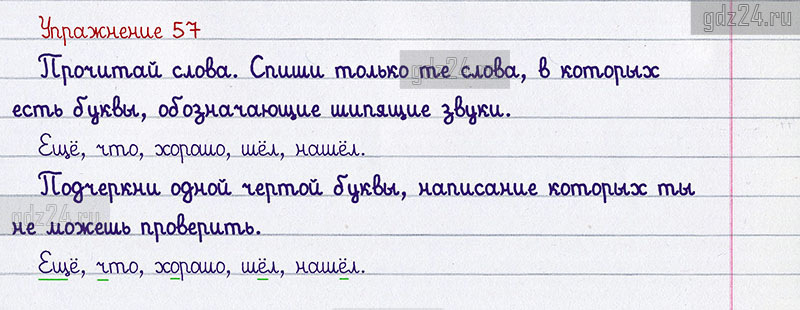 gdz24.ru
Упражнение 57
Прочитай слова. Спиши только те слова, в которых
gdz24.ru
есть буквы, обозначающие шипящие звуки.
Ещё, что, хорошо, шёл, нашёл.
Подчеркни одной чертой буквы, написание которых ты
gdz24.ru
не можешь проверить.
Ещё, что, хорошо, шёл, нашёл.